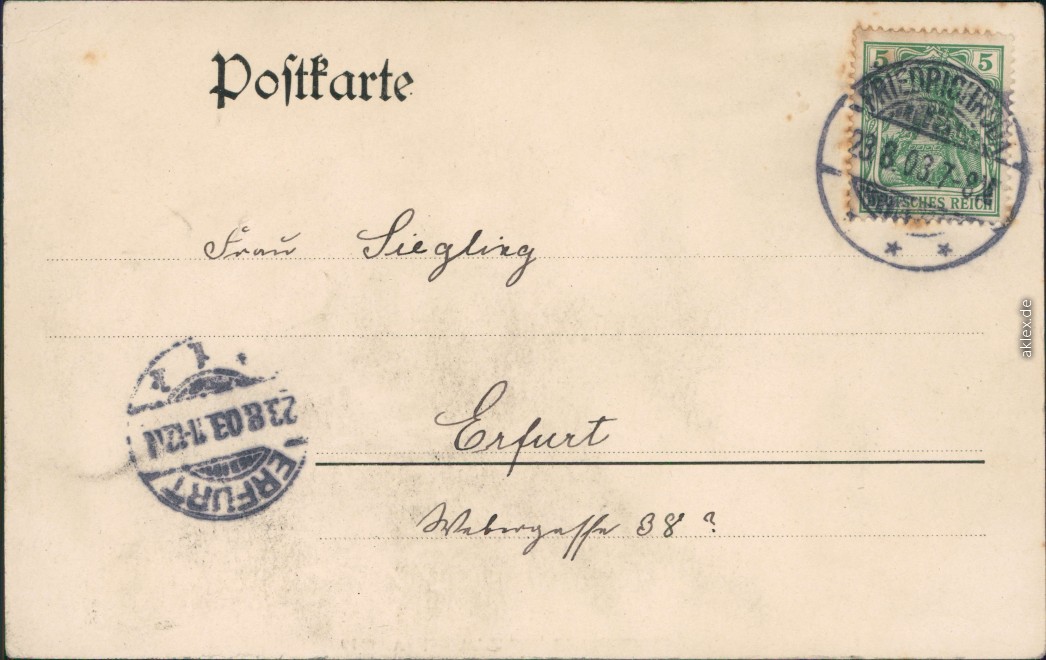 Postkarte
5 5
FRIEDRICHRODA
23.8.03.7-8V.
DEUTSCHES REICH
Frau Siegling
Erfurt
Webergasse 38?
ERFURT
23.8.03.11-12.V
1
aklex.de